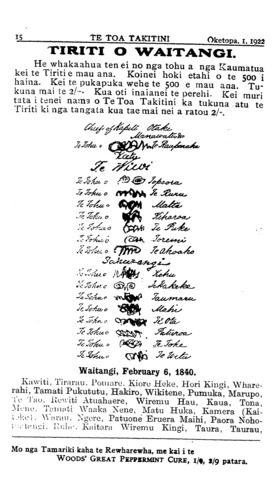 15 TE TOA TAKITINI Oketopa, 1, 1922
TIRITI O WAITANGI.
He whakaahua ten ei no nga tohu a nga Kaumatua
kei te Tiriti e mau ana. Koinei hoki etahi o te 500 i
haina. Te pukapuka wehe te 500 e mau ana. Tu-
kuna mai te 2/-. Kua oti inaianei te perehi. Kei muri
tata i tenei nama o Te Toa Takitini ka tukuna atu te
Tiriti ki nga tangata kua tae mai nei a ratou 2/-.
Chief of Kapiti Otaki
Manawatu
Te Tohu o Te Rauparaha
Te Wiwi
Te Tohu o Topeora
Te Tohu o Te Ruru
Te Tohu o Matia
Te Tohu o Kiharoa
Te Tohu o Te Puke
Te Tohu o
Te Tohu o Te Ahoaho
Te Tohu o Kehu
Te Tohu o
Te Tohu o Taumaru
Te Tohu o Mahi
Te Tohu o
Te Tohu o
Te Tohu o Te Toke
Te Tohu o
Waitangi, February 6, 1840.
Kawiti, Tirarau, Pomare. Kiore Heke, Hori Kingi, Whare-
rahi, Tamati Pukututu, Hakiro, Wikitene, Pumuka, Marupo,
Te Tao, Rewiti Atuahaere, Wiremu Hau, Kaua, Tona,
Mene, Tamati Waaka Nene, Matu Huka, Kamera (Kai-
Warau, Ngere, Patuone Eruera Maihi, Paora Noho-
Ruhe, Kaitara Wiremu Kingi, Taura, Taurau,
Mo nga Tamariki kaha te Rewharewha, me kai i te
WOODS' GREAT PEPPERMINT CURE, 1/9, 2/9 patara.